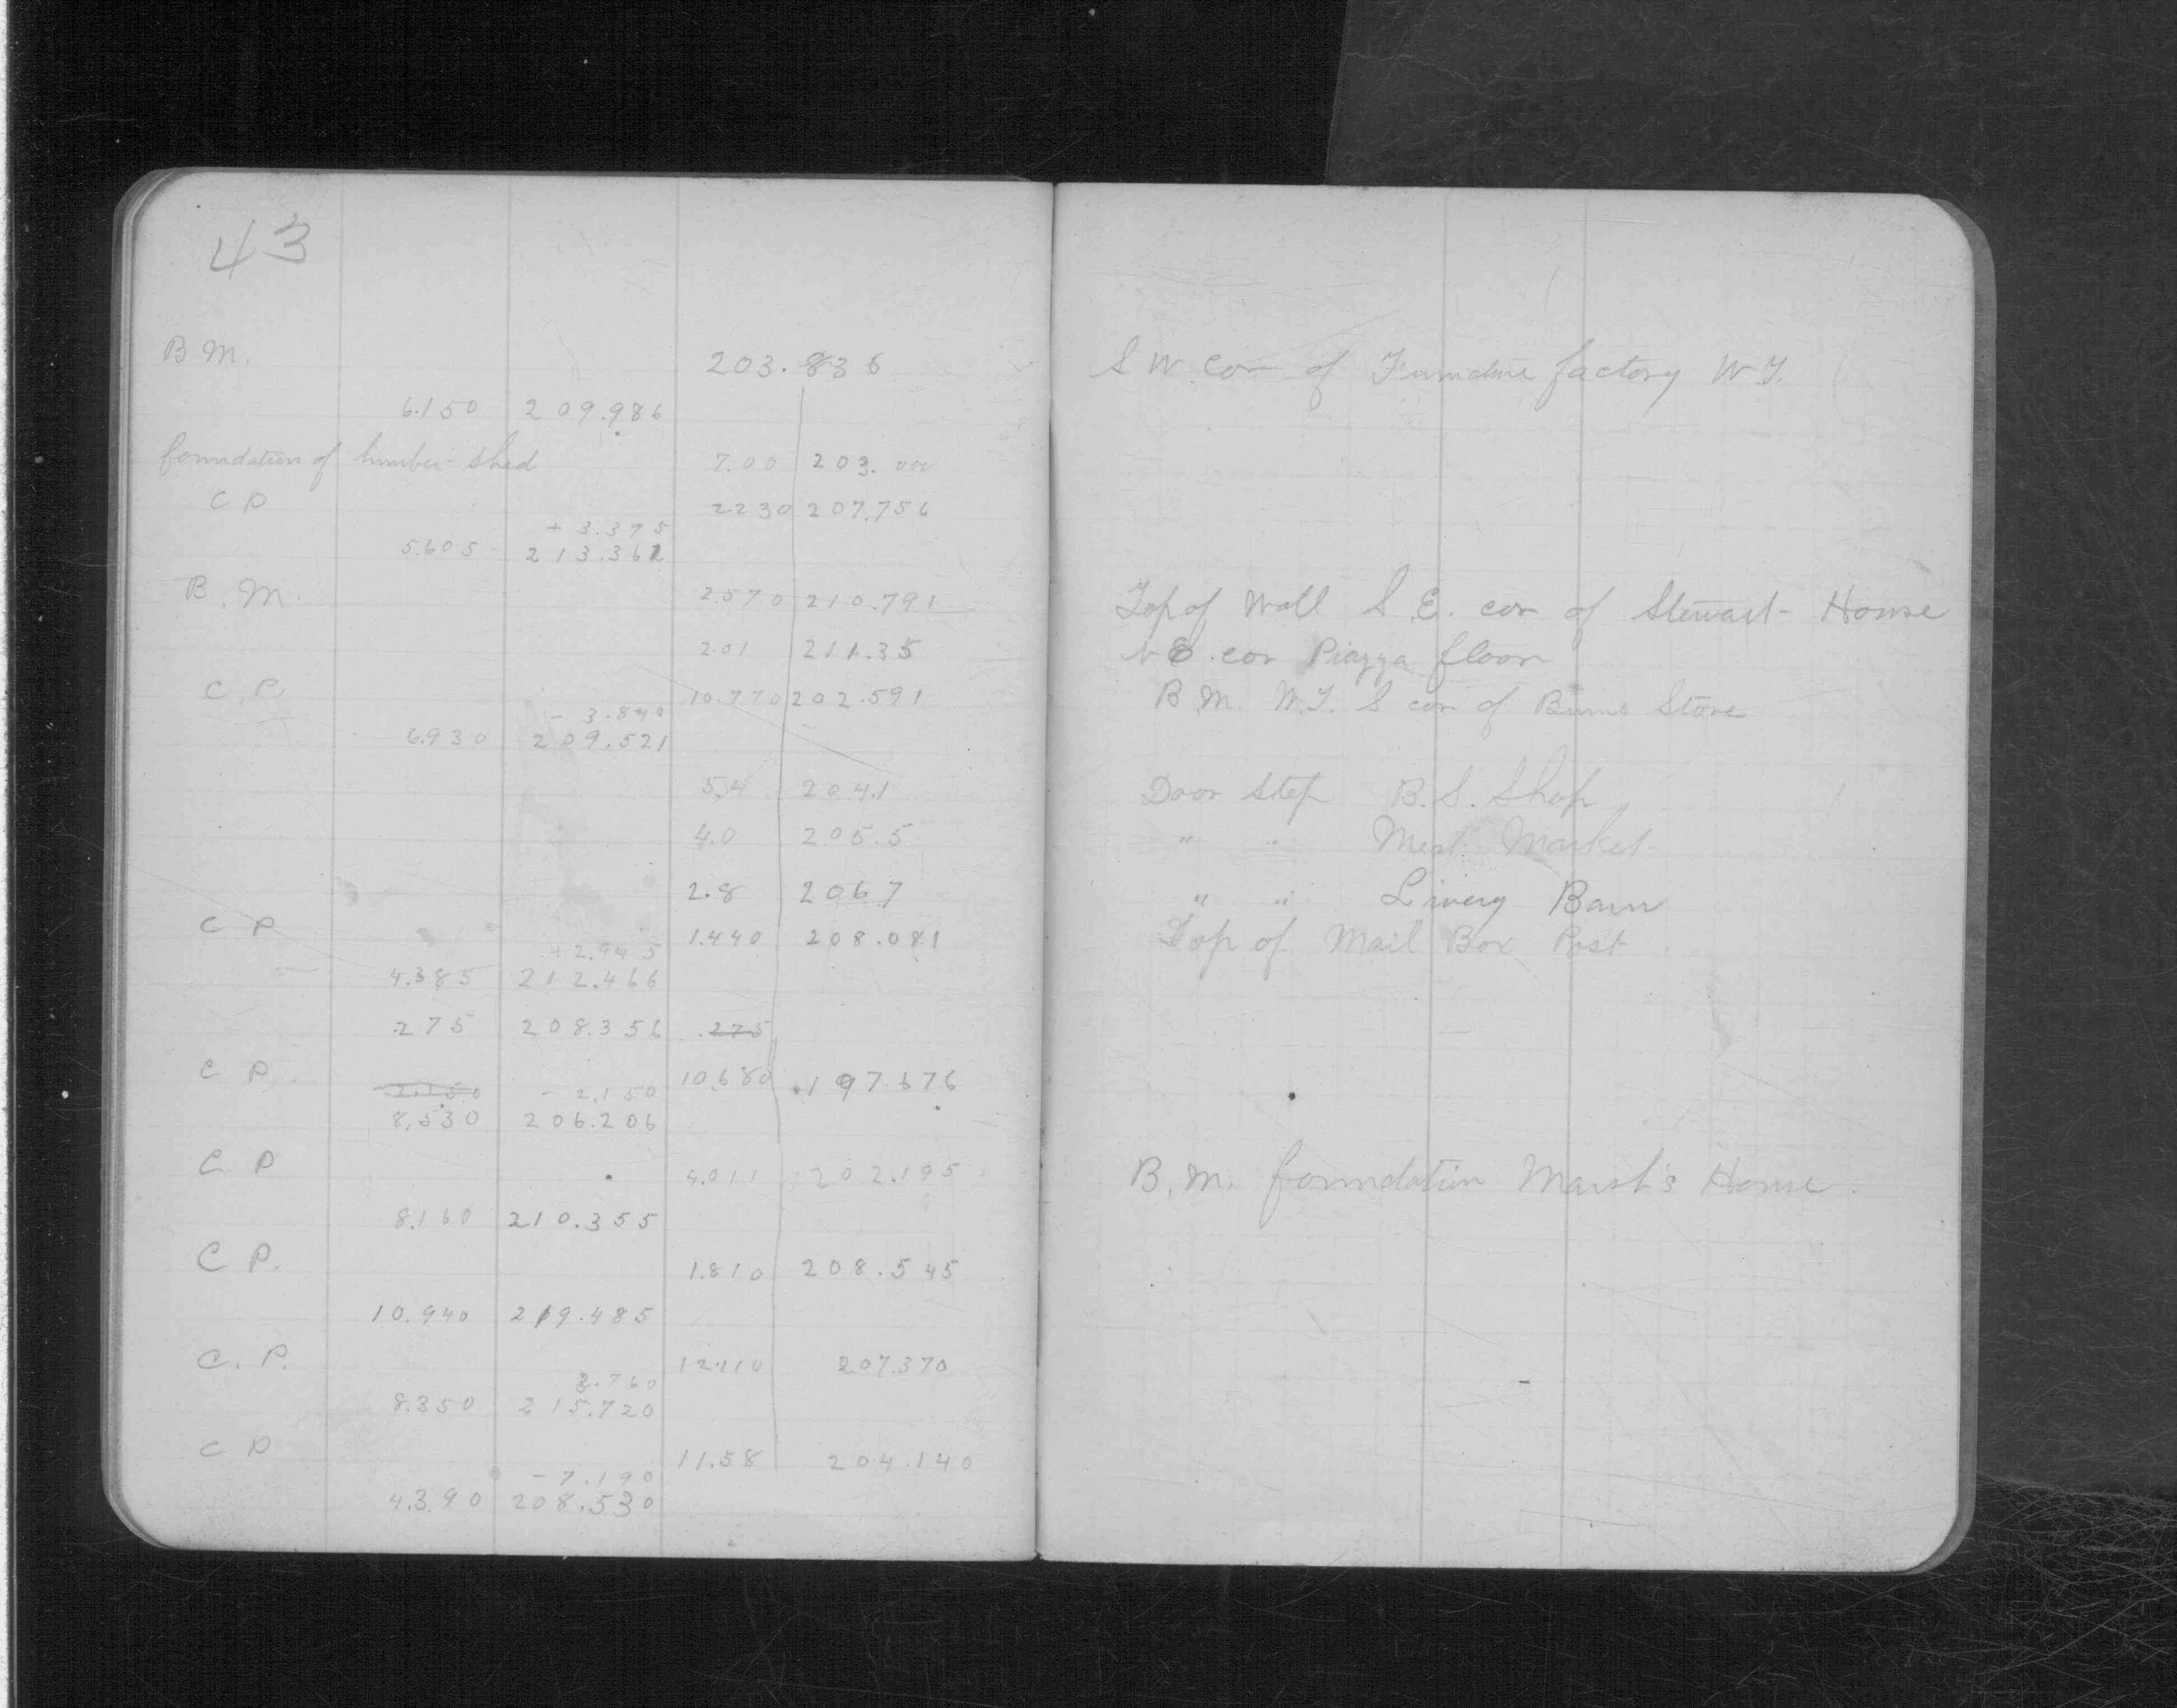 43
B M. 203.836 S W. Cor of Furniture factory W T.
6.150 209.986
foundation of lumber shed 7.00 203.00
C P 2230 207.756
+ 3.375
5.605 213.361
B. M. 2.570 210.791 Top of Wall S.E. cor of Stewart House
2.01 211.35 N E. cor Piazza floor
C. P. 10.770 202.591 B.M. W.T. S cor of Burns Store
- 3.840
6.930 209.521
5.4 204.1 Door Step B.S. Shop
4.0 205.5 " " Meat Market
2.8 206.7 " " Livery Barn
C P 1.440 208.081 Top of Mail Box Post
+2.945
4.385 212.466
.275 208.356 .275
C P. 10.680 .197.676
2.150 - 2.150
8.530 206.206
C P 4.011 202.195 B.M. foundation Marsh's House.
8.160 210.355
C P. 1.810 208.545
10.940 219.485
C. P. 12.110 207.370
3.760
8.350 215.720
C P 11.58 204.140
- 7.190
4.390 208.530